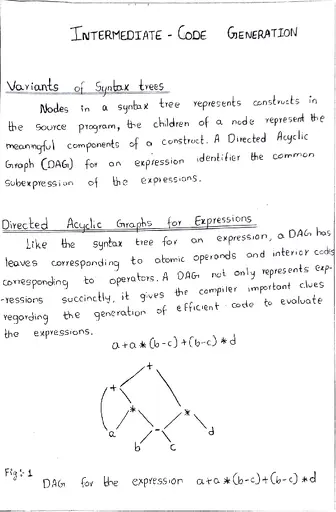 INTERMEDIATE - CODE GENERATION
Variants of Syntax trees
Nodes in a syntax tree represents constructs in
the source program, the children of a node represent the
meaningful components of a construct. A Directed Acyclic
Graph (DAG) for an expression identifier the common
subexpression of the expressions.
Directed Acyclic Graphs for Expressions
Like the syntax tree for an expression, a DAG has
leaves corresponding to atomic operands and interior codes
corresponding to operators. A DAG not only represents exp-
-ressions succinctly, it gives the compiler important clues
regarding the generation of efficient code to evaluate
the expressions.
a+a*(b-c)+(b-c)*d
+
+
* *
a - d
b c
Fig:- 1
DAG for the expression a+a*(b-c)+(b-c)*d